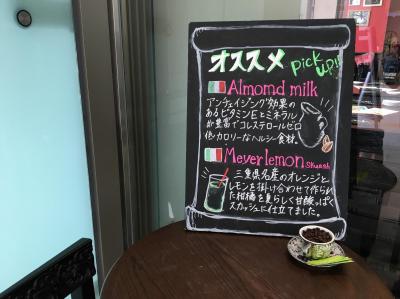 オススメ
pick up!!
Almomd milk
アンチェイジング効果の
あるビタミンEとミネラル
が豊富でコレステロールゼロ
低カロリーなヘルシー食材。
Meyer lemon Skuash
三重県名産のオレンジと
レモンを掛け合わせて作られ
た柑橘を夏らしく甘酸っぱく
スカッシュに仕立てました。